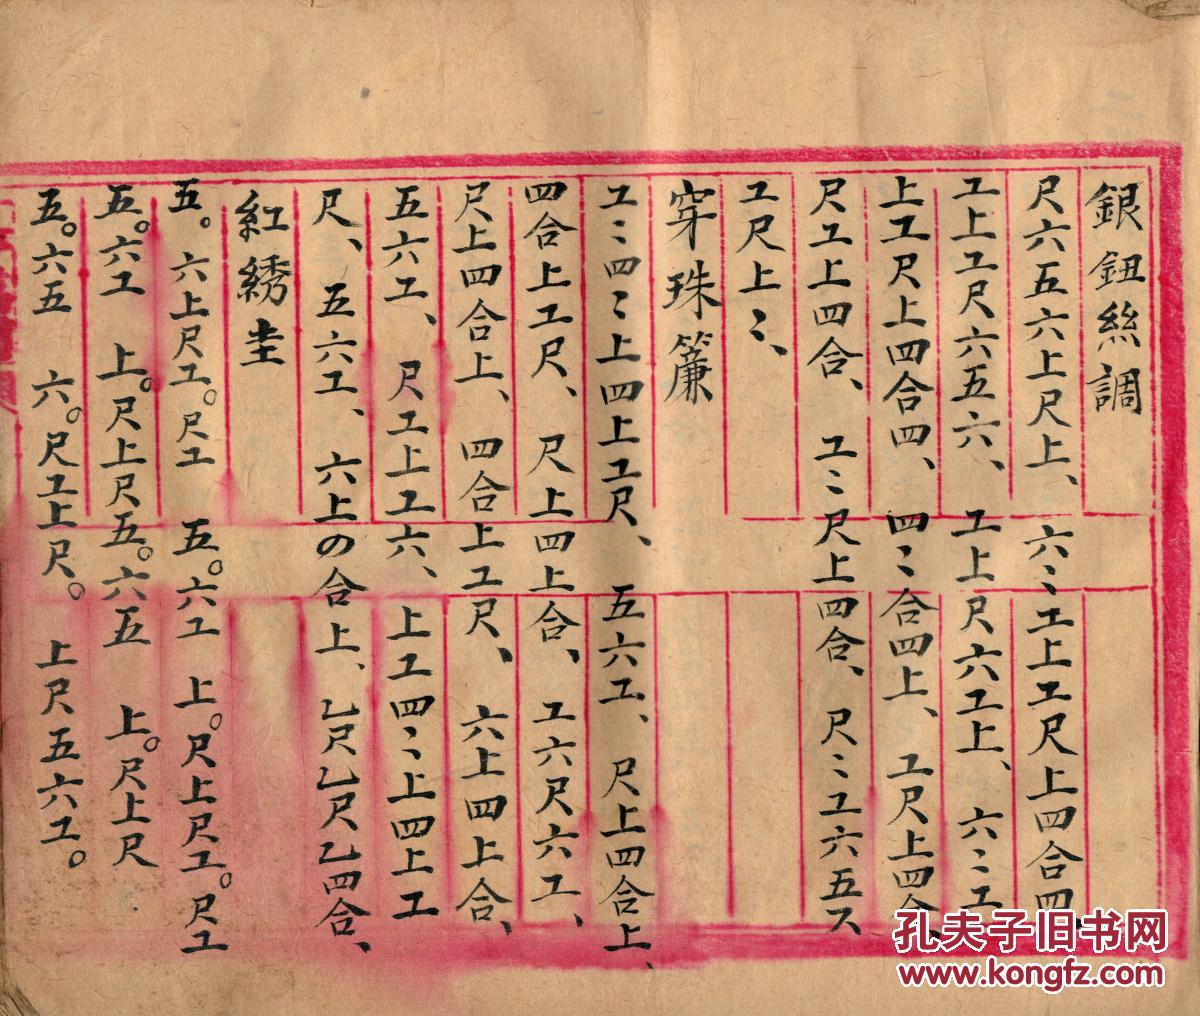 銀鈕絲調
尺六五六上尺上、六〻工上工尺上四合四、
工上工尺六五六、工上尺六工上、六〻工
上工尺上四合四、四〻合四上、工尺上四合、
尺工上四合、工〻尺上四合、尺〻工六五
工尺上〻、
穿珠簾
工〻四〻上四上工尺、五六工、尺上四合上、
四合上工尺、尺上四上合、工六尺六工、
尺上四合上、四合上工尺、六上四上合、
五六工、尺工上工六、上工四〻上四上工
尺、五六工、六上の合上、乙尺乙尺乙四合、
紅綉
五。六上尺工。尺工 五。六工 上。尺上尺工。尺工
五。六工 上。尺上尺五。六五 上。尺上尺
五。六五 六。尺工上尺。上尺五六工。
孔夫子旧书网
www.kongfz.com